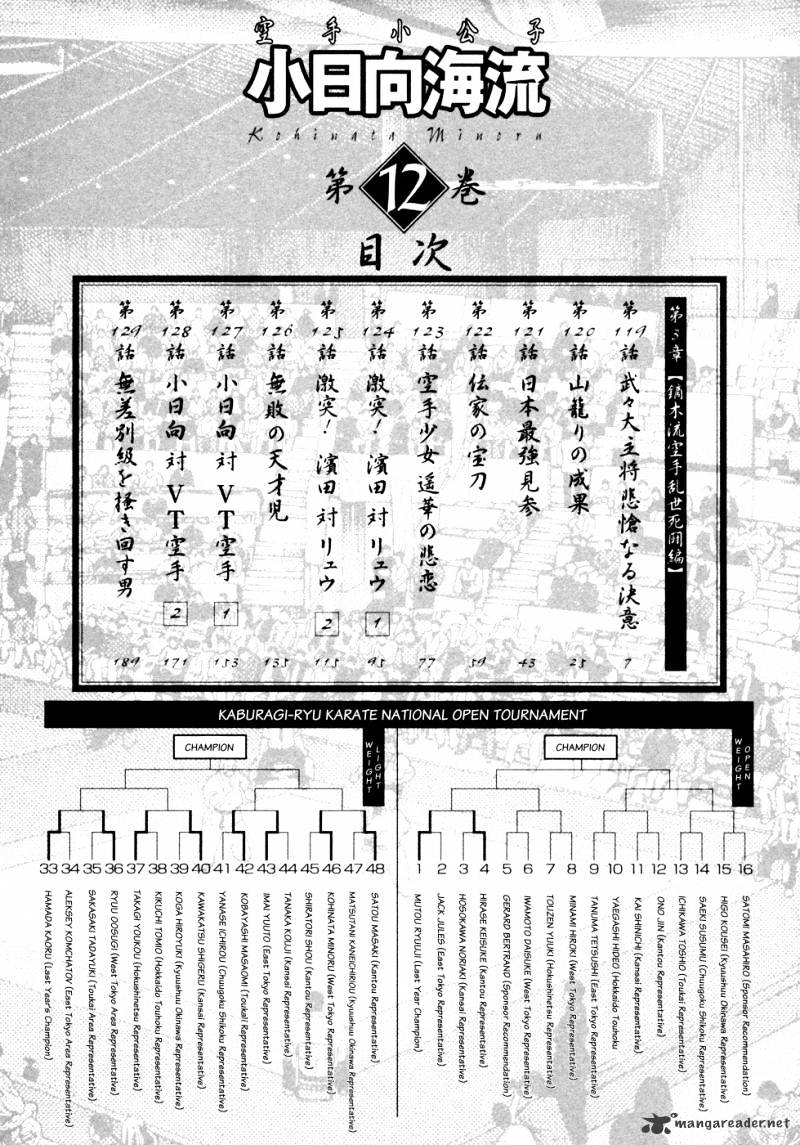 空手小公子
小日向海流
Kohinata Minoru
第12巻
目次
第5章【鏑木流空手乱世死闘編】
第119話 武々大主将悲愴なる決意 7
第120話 山籠りの成果 25
第121話 日本最強見参 43
第122話 伝家の宝刀 59
第123話 空手少女遥華の悲恋 77
第124話 激突! 濱田対リュウ 1 95
第125話 激突! 濱田対リュウ 2 115
第126話 無敗の天才児 135
第127話 小日向対VT空手 1 153
第128話 小日向対VT空手 2 171
第129話 無差別級を掻き回す男 189
KABURAGI-RYU KARATE NATIONAL OPEN TOURNAMENT
LIGHT WEIGHT
CHAMPION
33 HAMADA KAORU (Last Year's Champion)
34 ALEKSEY KOMCHATOV (East Tokyo Area Representative)
35 SAKASAKI TADAYUKI (Toukai Area Representative)
36 RYUU OOSUGI (West Tokyo Area Representative)
37 TAKAGI YOUKOU (Hokushinetsu Representative)
38 KIKUCHI TOMIO (Hokkaido Touhoku Representative)
39 KOGA HIROYUKI (Kyuushuu Okinawa Representative)
40 KAWAKATSU SHIGERU (Kansai Representative)
41 YANASE ICHIROU (Chuugoku Shikoku Representative)
42 KOBAYASHI MASAOMI (Toukai Representative)
43 IMAI YUUTO (East Tokyo Representative)
44 TANAKA KOUJI (Kansai Representative)
45 SHIRATORI SHOU (Kantou Representative)
46 KOHINATA MINORU (West Tokyo Representative)
47 MATSUTANI KANEICHIROU (Kyuushuu Okinawa Representative)
48 SATOU MASAKI (Kantou Representative)
OPEN WEIGHT
CHAMPION
1 MUTOU RYUUJI (Last Year Champion)
2 JACK JULES (East Tokyo Representative)
3 HOSOKAWA NORIAKI (Kansai Representative)
4 HIRASE KEISUKE (Kantou Representative)
5 GERARD BERTRAND (Sponsor Recommendation)
6 IWAMOTO DAISUKE (West Tokyo Representative)
7 TOUZEN YUUKI (Hokushinetsu Representative)
8 MINAMI HIROKI (West Tokyo Representative)
9 TANIJMA TETSUSHI (East Tokyo Representative)
10 YAEGASHI HIDEO (Hokkaido Touhoku
11 KAI SHINICHI (Kansai Representative)
12 ONO JIN (Kantou Representative)
13 ICHIKAWA TOSHIO (Toukai Representative)
14 SAEKI SUSUMU (Chuugoku Shikoku Representative)
15 HIGO KOUSEI (Kyuushuu Okinawa Representative)
16 SATOMI MASAHIRO (Sponsor Recommendation)
mangareader.net